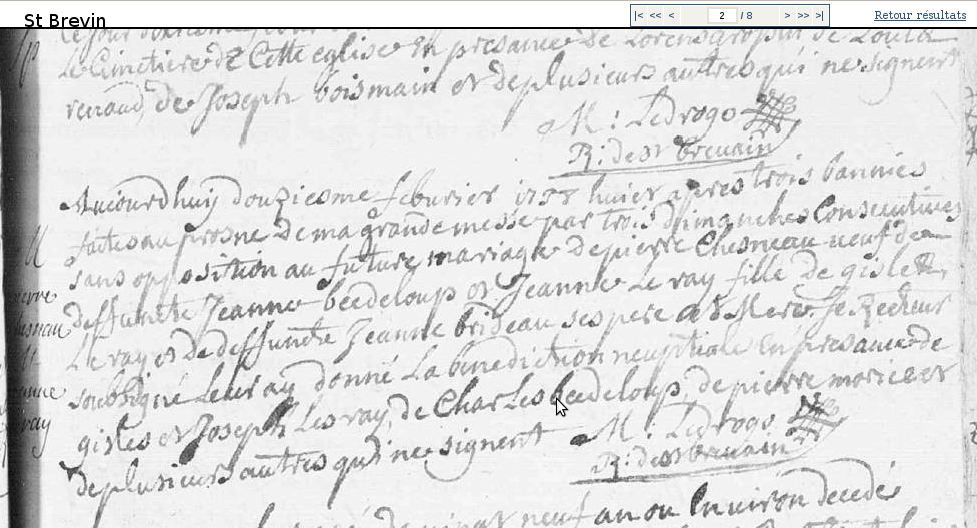 St Brevin
|< << < 2 / 8 > >> >|
Retour résultats
le Cimetiere de Cette eglise En presance de
renaud, de Joseph boismain et de plusieurs autres qui ne signent
M: Ledrogo
R: de st brevain
Aujourdhuij douziesme febvrier 1738 apres trois bannies
faites au prosne de ma grande messe par trois dimanches Consecutives
sans opposition au future mariage de pierre Chesneau veuf de
deffuncte Jeanne beedeloup et Jeanne Le ray fille de gisle
Le ray et de deffuncte Jeanne brideau ses pere et Mere. Je Recteur
soubsigné Leur ay donné La benediction neuptiale En presance de
gisles et Joseph Les ray, de CharLes beedeloup, de pierre
de plusieurs autres qui ne signent
M: Ledrogo
R: de st brevain
neuf an ou Environ decedé